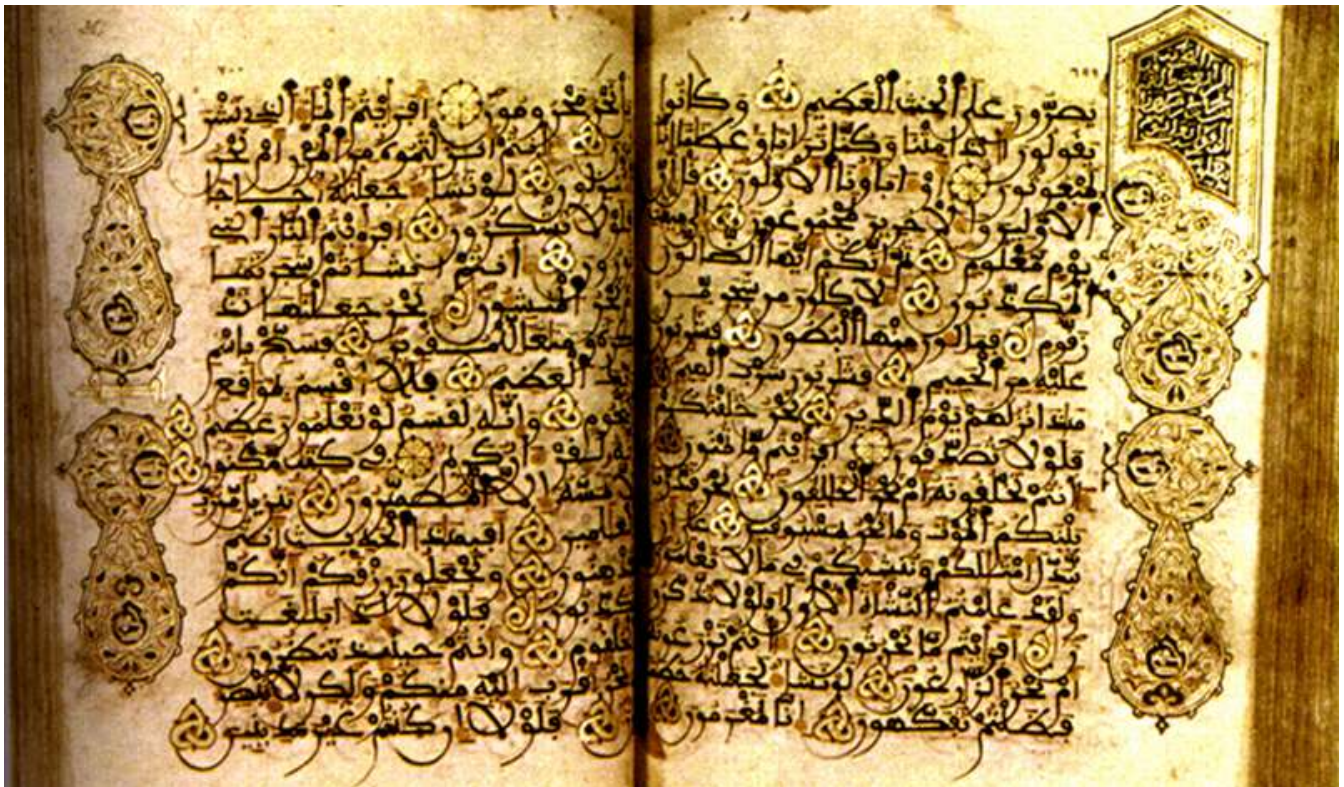 ٦٩٩
يصرون على الحنث العظيم وكانوا
يقولون ايذا متنا وكنا ترابا وعظاما انا
لمبعوثون او اباونا الاولون قل ان
الاولين والاخرين لمجموعون الى ميقت
يوم معلوم ثم انكم ايها الضالون
المكذبون لاكلون من شجر من
زقوم فمالون منها البطون فشربون
عليه من الحميم فشربون شرب الهيم
هذا نزلهم يوم الدين نحن خلقنكم
فلولا تصدقون افرءيتم ما تمنون
ءانتم تخلقونه ام نحن الخلقون نحن قدرنا
بينكم الموت وما نحن بمسبوقين على ان
نبدل امثلكم وننشيكم في ما لا تعلمون
ولقد علمتم النشاة الاولى فلولا تذكرو
ن افرءيتم ما تحرثون ءانتم تزرعونه
ام نحن الزرعون لو نشا لجعلنه حطما
فظلتم تفكهون انا لمغرمون
٧٠٠
بل نحن محرومون افرءيتم الما الذي تشر
بون ءانتم انزلتموه من المزن ام نحن
المنزلون لو نشا جعلنه اجاجا
فلولا تشكرون افرءيتم النار التي
تورون ءانتم انشاتم شجرتها
ام نحن المنشون نحن جعلنها تذ
كرة ومتعا للمقوين فسبح باسم
ربك العظيم فلا اقسم بموقع
النجوم وانه لقسم لو تعلمون عظيم
انه لقرءان كريم في كتب مكنون
لا يمسه الا المطهرون تنزيل من رب
العلمين افبهذا الحديث انتم
مدهنون وتجعلون رزقكم انكم
تكذبون فلولا اذا بلغت
الحلقوم وانتم حينيذ تنظرون
ونحن اقرب اليه منكم ولكن لا تبصر
ون فلولا ان كنتم غير مدينين